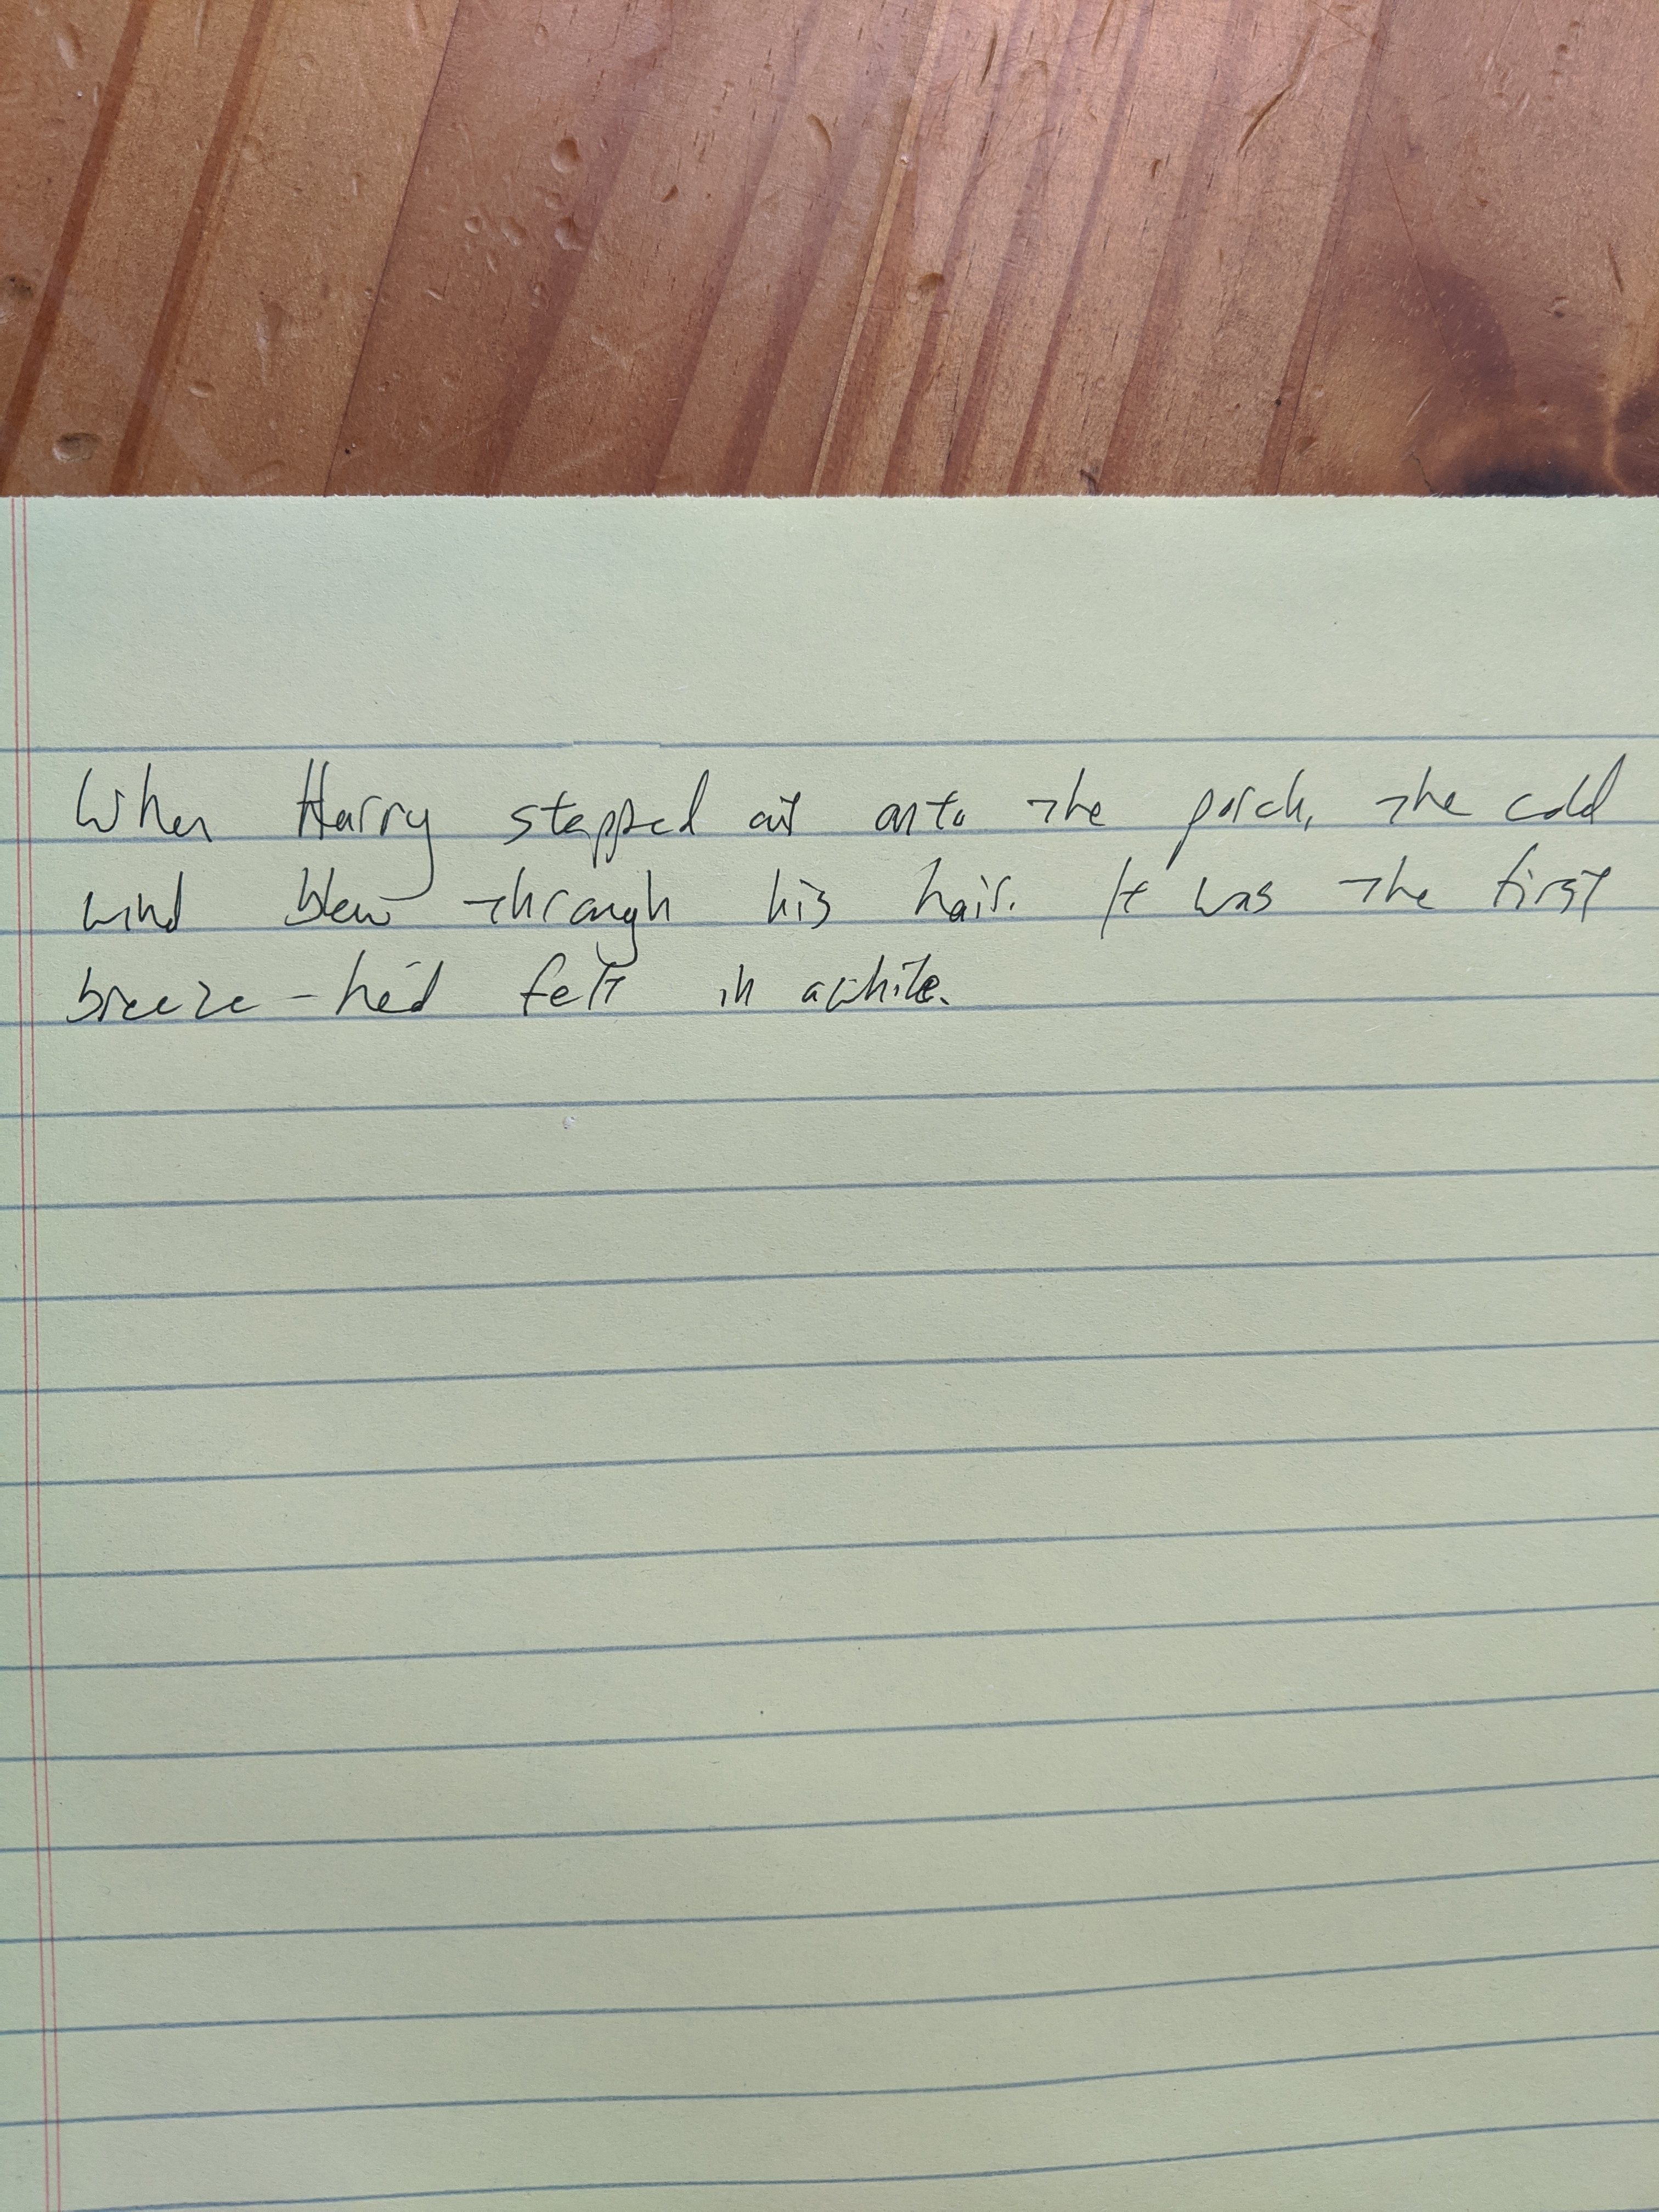 When Harry stepped out onto the porch, the cold
wind blew through his hair. It was the first
breeze - he'd felt in awhile.